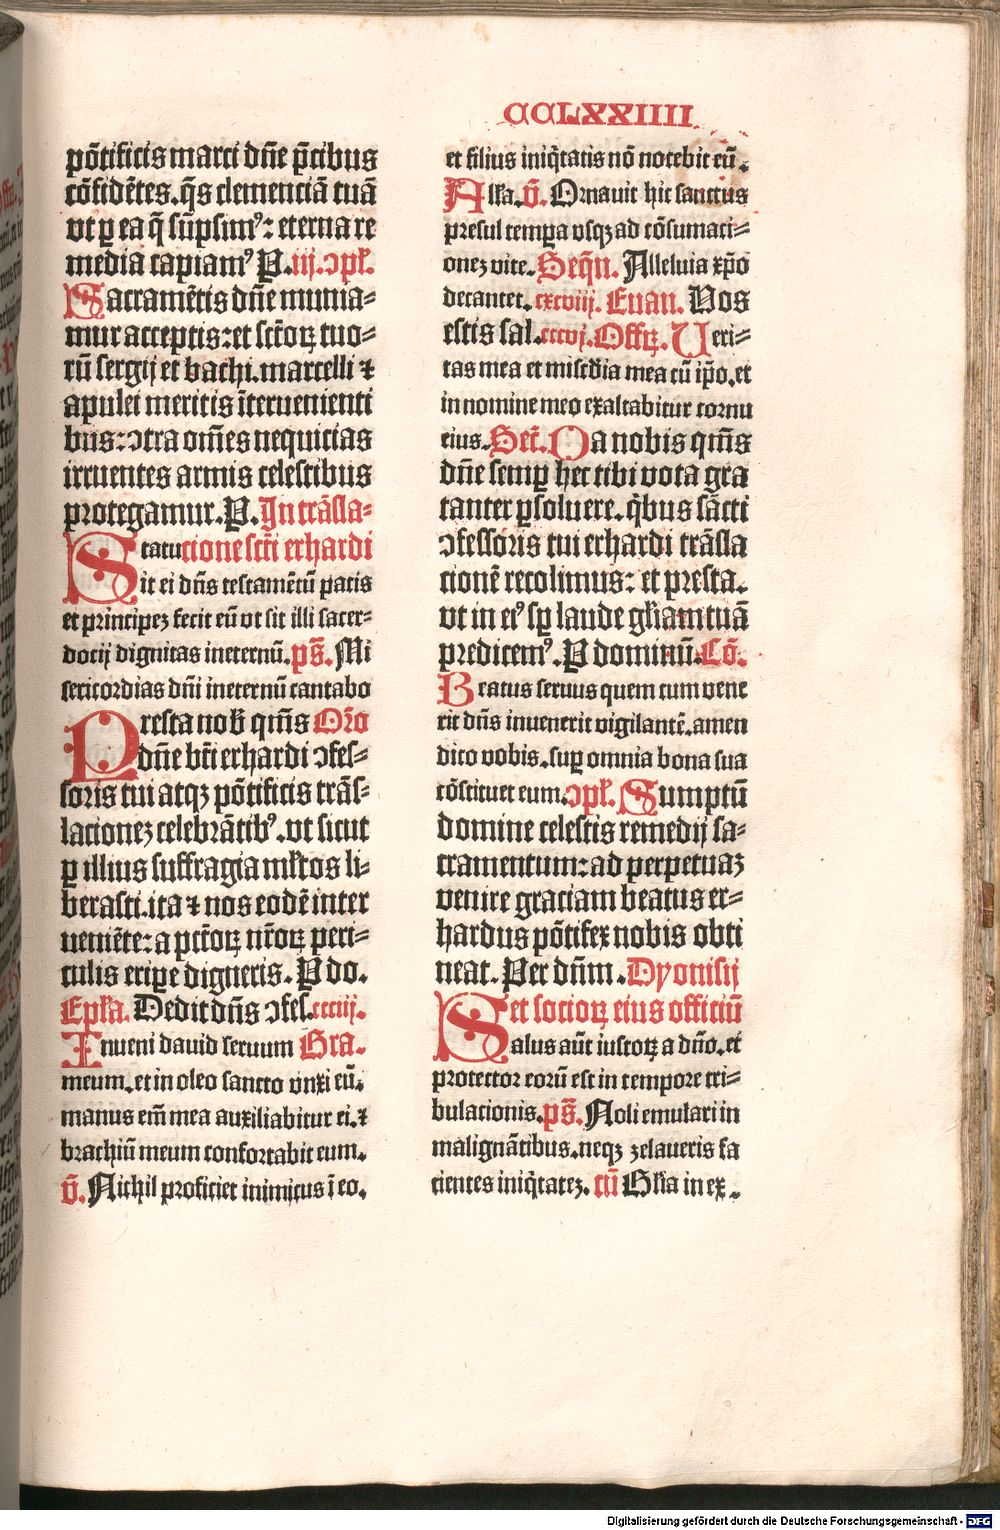 CCLXXIIII
põtificis marci dñe p̃cibus
cõfidẽtes. q̃s clemenciã tuã
vt ꝑ ea q̃ sũpsimꝰ: eterna re
media capiamꝰ P. iij. ↄpł.
Sacramẽtis dñe munia⸗
mur acceptis: et sctõꝝ tuo⸗
rũ sergij et bachi. marcelli ⁊
apulei meritis ĩteruenienti
bus: ↄtra om̃es nequicias
irruentes armis celestibus
protegamur. P. In trãsla⸗
Statu cione scti erhardi
it ei dñs testamẽtũ pacis
et principeꝫ fecit eũ vt sit illi sacer⸗
docij dignitas ineternũ. ps̃. Mi
sericordias dñi ineternũ cantabo
Presta nob̃ qm̃s Orõ
dñe bti erhardi ↄfes⸗
soris tui atqꝫ põtificis trãs⸗
lacioneꝫ celebrãtibꝰ. vt sicut
ꝑ illius suffragia mľtos li⸗
berasti. ita ⁊ nos eodẽ inter
ueniẽte: a pctõꝝ nrõꝝ peri⸗
culis eripe digneris. P do.
Epľa. Dedit dñs ↄfes. ccciij.
Inueni dauid seruum Gra.
meum. et in oleo sancto vnxi eũ.
manus em̃ mea auxiliabitur ei. ⁊
brachiũ meum confortabit eum.
v̄. Nichil proficiet inimicus ĩ eo.
et filius iniq̃tatis nõ nocebit eũ.
Alľa. v̄. Ornauit hic sanctus
presul tempa vsqꝫ ad cõsumaci⸗
oneꝫ vite. Seq̃n. Alleluia xp̃o
decantet. cxcviij. Euan. Vos
estis sal. cccvj. Offꝝ. Ueri⸗
tas mea et miscdia mea cũ ip̃o. et
in nomine meo exaltabitur cornu
eius. Sec̃. Da nobis qm̃s
dñe semꝑ hec tibi vota gra
tanter ꝑsoluere. q̃bus sãcti
ↄfessoris tui erhardi trãsla
cionẽ recolimus: et presta.
vt in etꝰ sꝑ laude gľiam tuã
predicemꝰ. P dominũ. Cõ.
Beatus seruus quem cum vene
rit dñs inuenerit vigilantẽ. amen
dico vobis. suꝑ omnia bona sua
cõstituet eum. ↄpł. Sumptũ
domine celestis remedij sa⸗
cramentum: ad perpetuaꝫ
venire graciam beatus er⸗
hardus põtifex nobis obti
neat. Per dñm. Dyonisij
et socioꝝ eius officiũ
Salus aũt iustoꝝ a dño. et
protector eorũ est in tempore tri⸗
bulacionis. ps̃. Noli emulari in
malignãtibus. neqꝫ zelaueris fa
cientes iniq̃tateꝫ. cũ Gľia in ex.
Digitalisierung gefördert durch die Deutsche Forschungsgemeinschaft - DFG